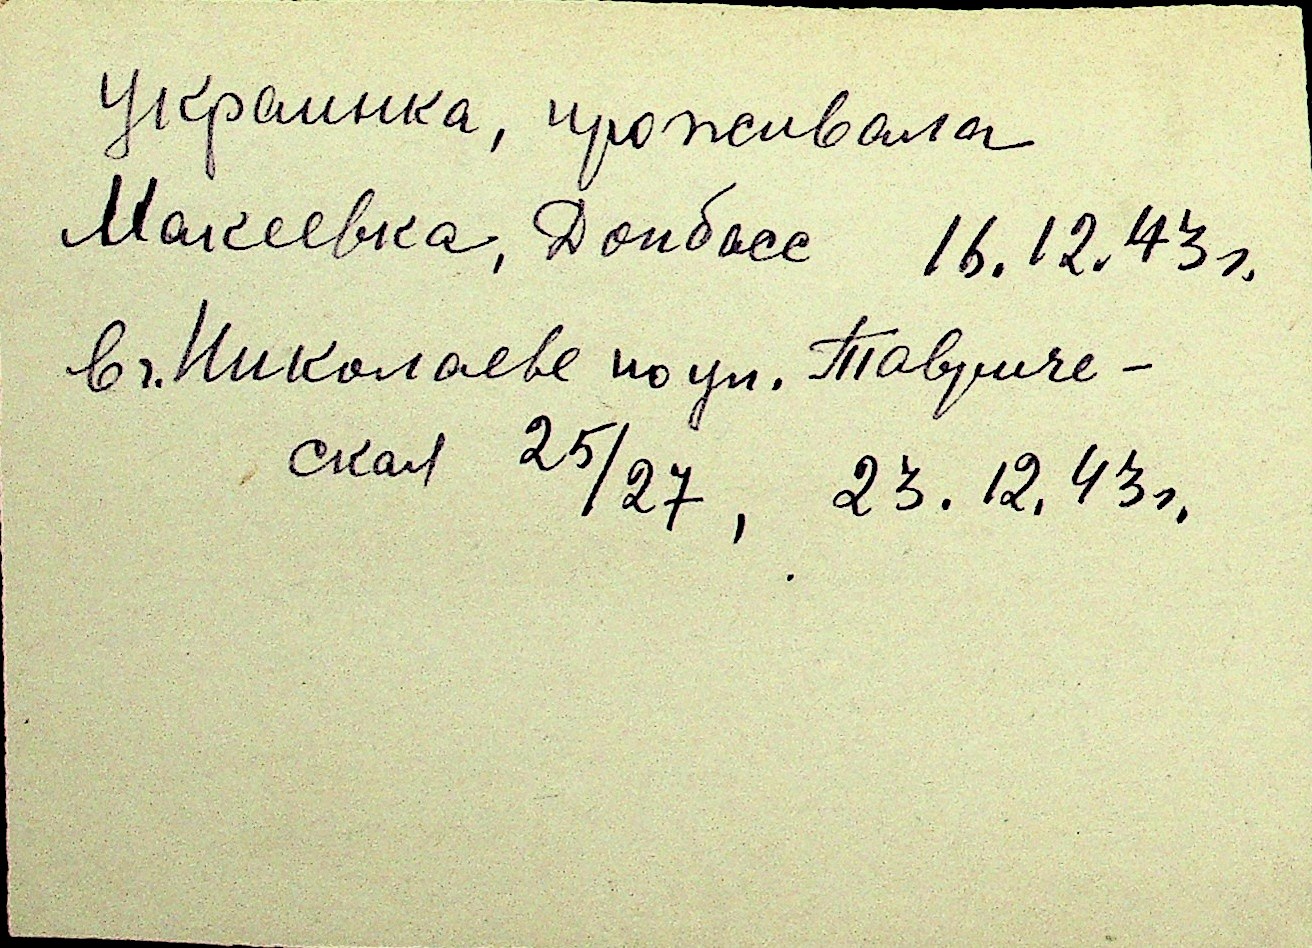 Украинка, проживала
Макеевка, Донбасс 16.12.43г.
в г. Николаеве по ул. Тавриче-
ская 25/27, 23.12.43г.